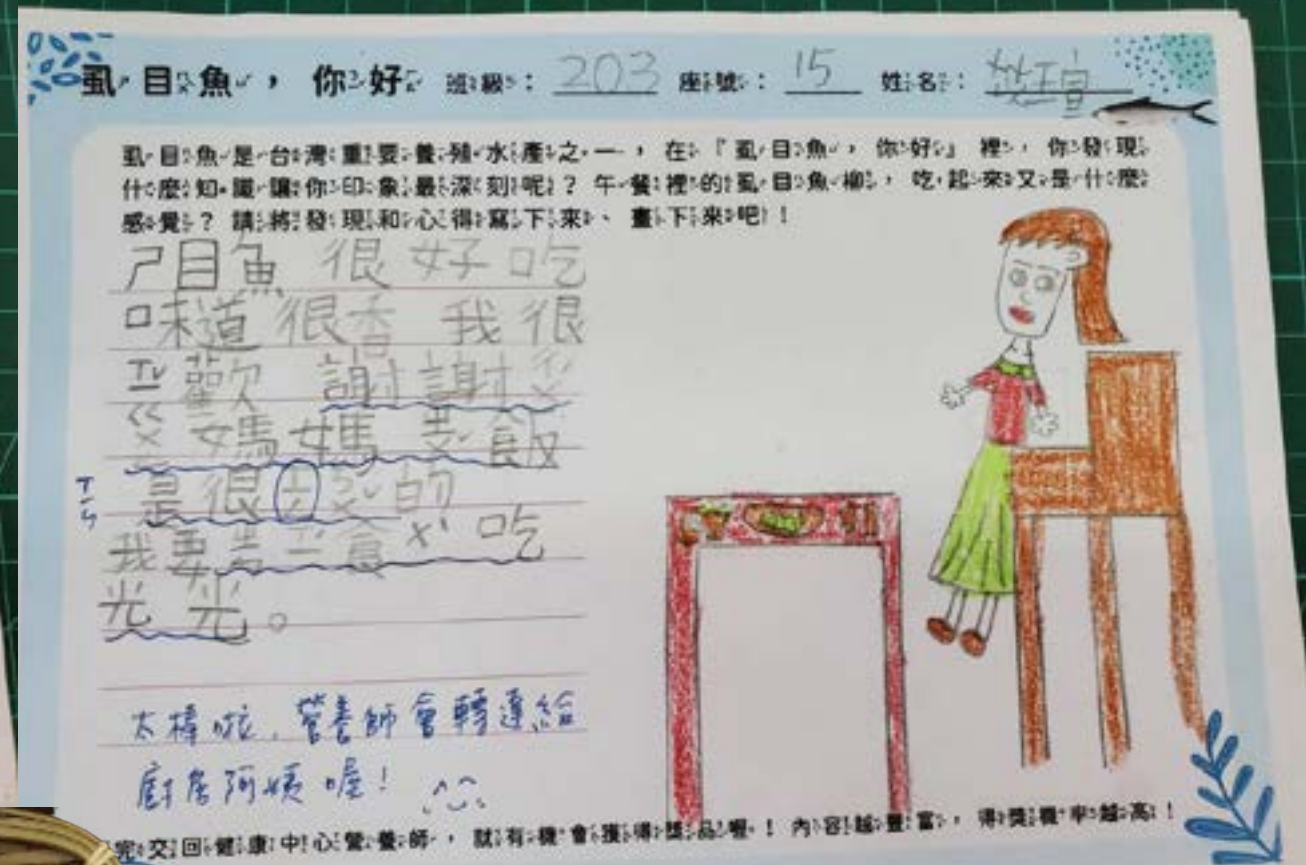 虱目魚，你好 班級：203 座號：15 姓名：
虱目魚是台灣重要養殖水產之一，在『虱目魚，你好』裡，你發現
什麼知識讓你印象最深刻呢？午餐裡的虱目魚柳，吃起來又是什麼
感覺？請將發現和心得寫下來、畫下來吧！
ㄕ目魚 很好吃
味道很香 我很
ㄒㄧ歡 謝謝
媽媽 煮飯
ㄒㄧㄣ
是很 的
我要 食 吃
光光。
太棒啦，營養師會轉達給
廚房阿姨喔！
完交回健康中心營養師，就有機會獲得獎品喔！內容越豐富，得獎機率越高！